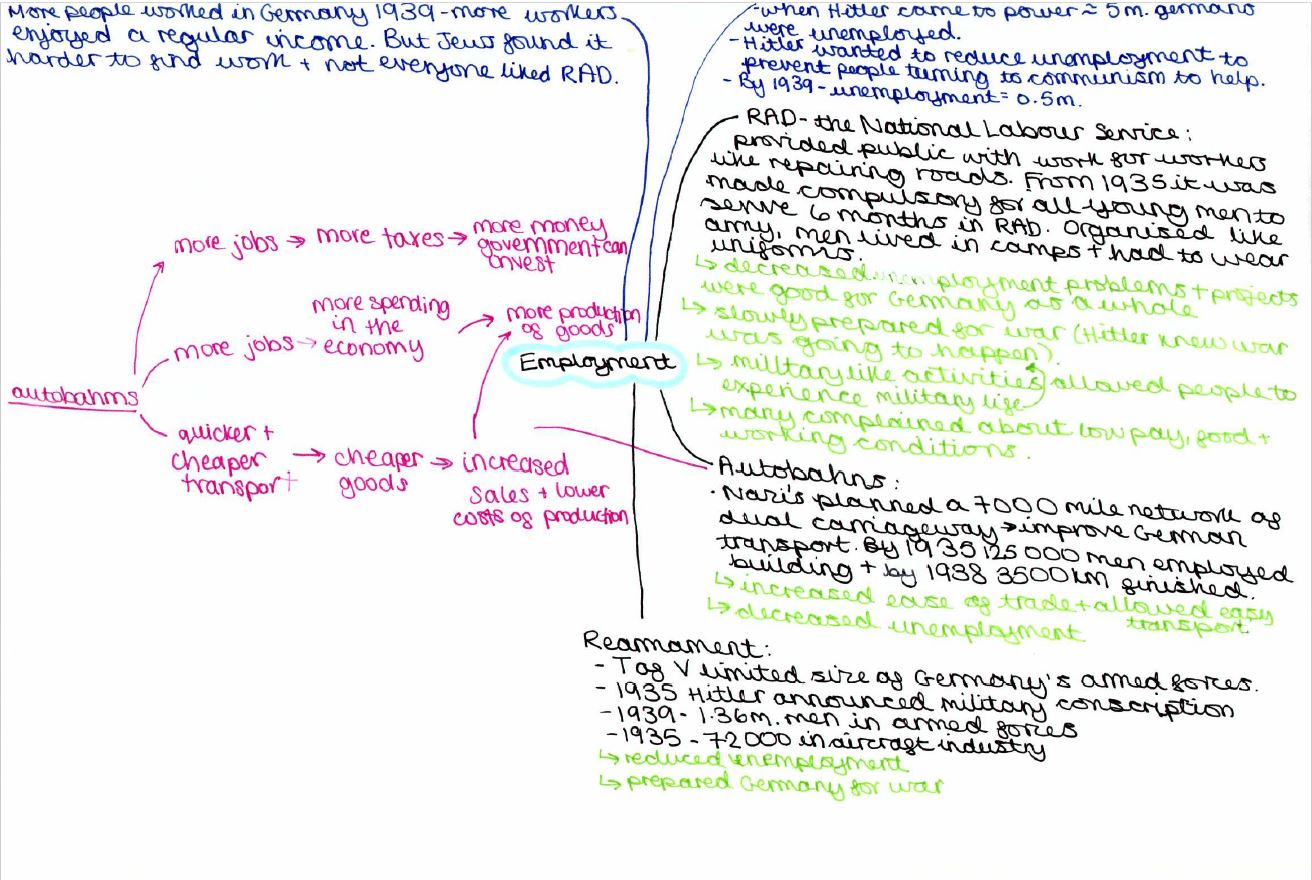 More people worked in Germany 1939 - more workers
enjoyed a regular income. But Jews found it
harder to find work + not everyone liked RAD.
- when Hitler came to power ≈ 5m. germans
were unemployed.
- Hitler wanted to reduce unemployment to
prevent people turning to communism to help.
- By 1939 - unemployment = 0.5m.
RAD - the National Labour Service:
provided public with work for workers
like repairing roads. From 1935 it was
made compulsory for all young men to
serve 6 months in RAD. Organised like
army, men lived in camps + had to wear
uniforms.
↳ decreased unemployment problems + projects
were good for Germany as a whole
↳ slowly prepared for war (Hitler knew war
was going to happen).
↳ military like activities allowed people to
experience military life
↳ many complained about low pay, food +
working conditions.
Employment
autobahns
more jobs → more taxes → more money
government can
invest
more jobs → more spending
in the
economy
→ more production
of goods
quicker +
cheaper
transport
→ cheaper
goods
→ increased
sales + lower
costs of production
Autobahns:
· Nazi's planned a 7000 mile network of
dual carriageway → improve German
transport. By 1935 125 000 men employed
building + by 1938 3500 km finished.
↳ increased ease of trade + allowed easy
transport
↳ decreased unemployment
Rearmament:
- T of V limited size of Germany's armed forces.
- 1935 Hitler announced military conscription
- 1939 - 1.36m. men in armed forces
- 1935 - 72000 in aircraft industry
↳ reduced unemployment
↳ prepared Germany for war